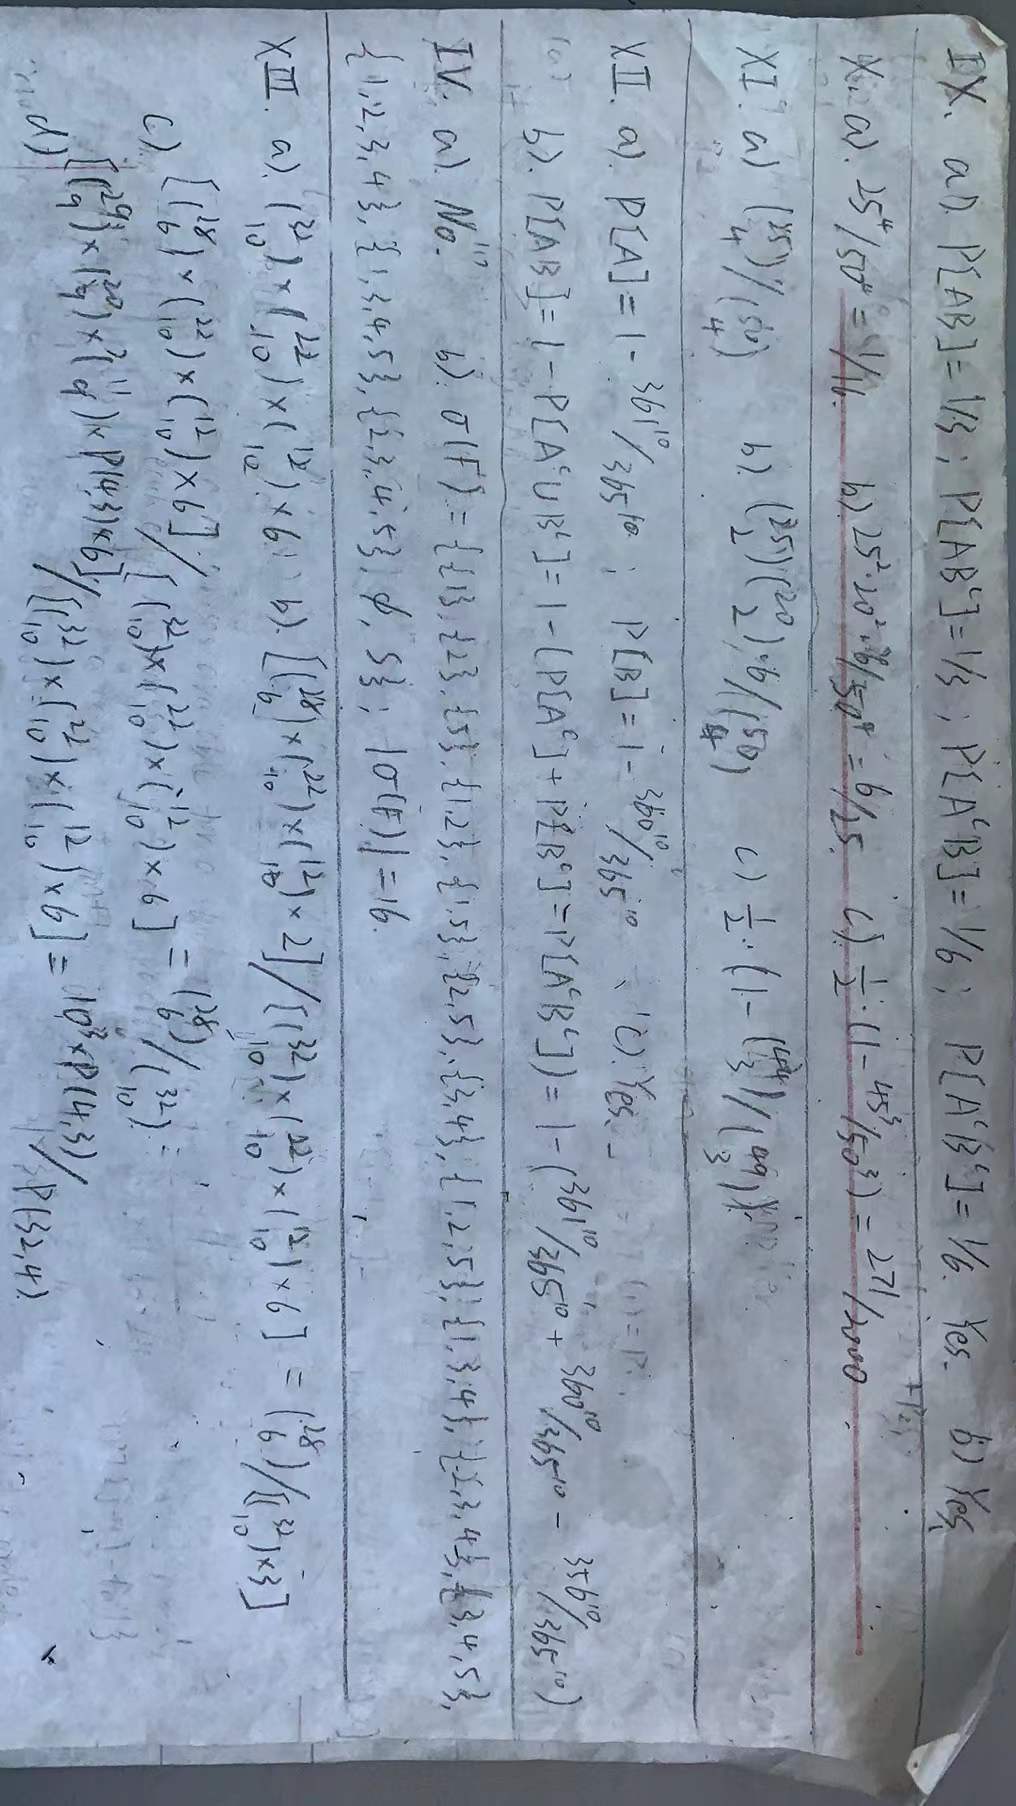 IX. a). P[AB]=1/3; P[ABᶜ]=1/3; P[AᶜB]=1/6; P[AᶜBᶜ]=1/6. Yes. b) Yes.
X. a). 25⁴/50⁴=1/16. b). 25²·20²·6/50⁴=6/25. c). 1/2·(1-45³/50³)=271/2000
XI. a) (25 4)/(50 4) b). (25 2)(20 2)·6/(50 4) c) 1/2·(1-(44 3)/(49 3)).
XII. a). P[A]=1-361¹⁰/365¹⁰; P[B]=1-360¹⁰/365¹⁰ c). Yes.
b). P[AB]=1-P[Aᶜ∪Bᶜ]=1-(P[Aᶜ]+P[Bᶜ]-P[AᶜBᶜ])=1-(361¹⁰/365¹⁰+360¹⁰/365¹⁰-356¹⁰/365¹⁰)
IV. a). No. b). σ(F)={{1},{2},{5},{1,2},{1,5},{2,5},{3,4},{1,2,5},{1,3,4},{2,3,4},{3,4,5},
{1,2,3,4},{1,3,4,5},{2,3,4,5},ϕ,S}; |σ(F)|=16.
XIII. a). (32 10)×(22 10)×(12 10)×6 b). [(28 6)×(22 10)×(12 10)×2]/[(32 10)×(22 10)×(12 10)×6]=(28 6)/[(32 10)×3]
c). [(28 6)×(22 10)×(12 10)×6]/[(32 10)×(22 10)×(12 10)×6]=(28 6)/(32 10)
d) [(29 9)×(20 9)×(11 9)×P(4,3)×6]/[(32 10)×(22 10)×(12 10)×6]=10³×P(4,3)/P(32,4).